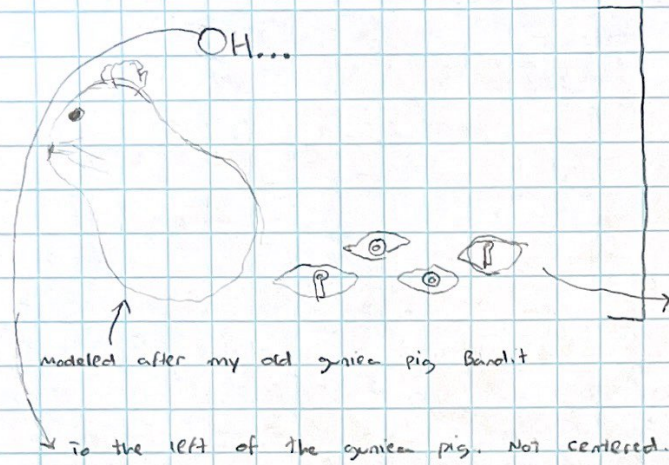 OH...
Modeled after my old guniea pig Bandit
To the left of the guniea pig. Not centered.